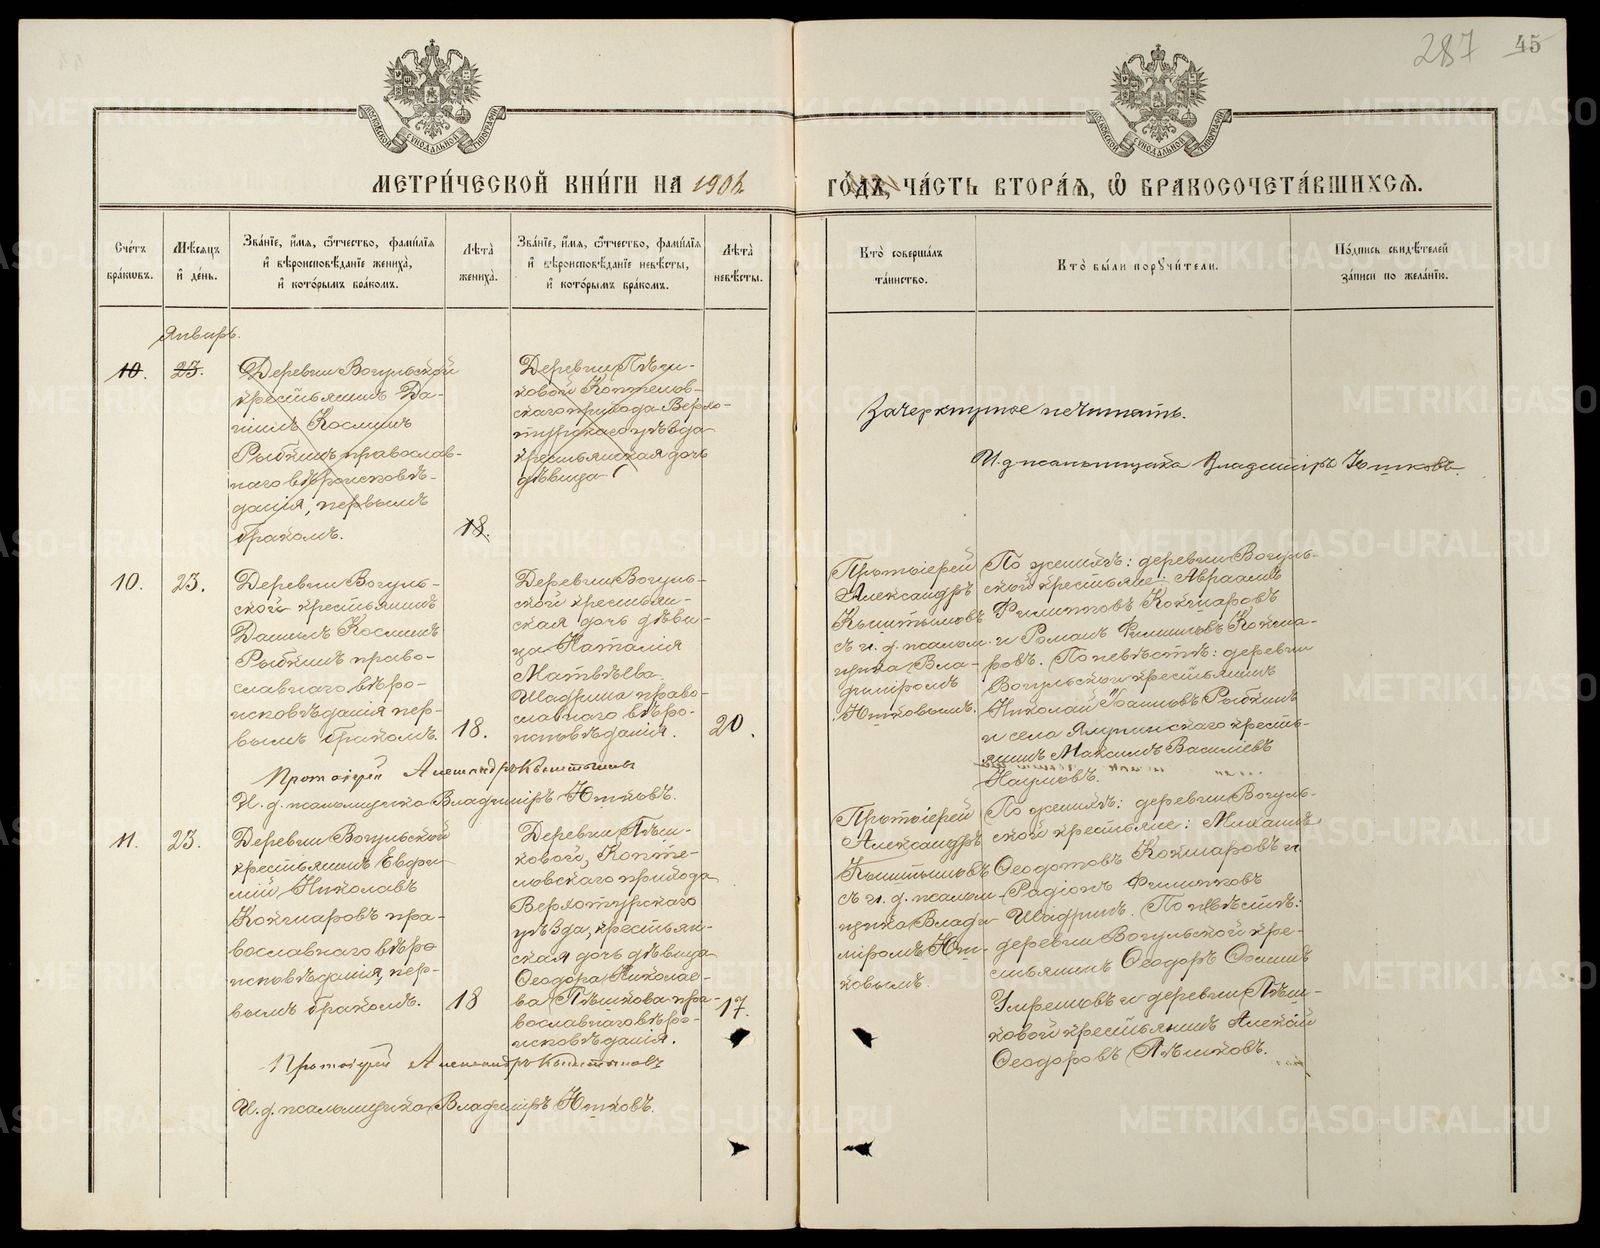 287 45
МОСКОВСКОЙ СѴНОДАЛЬНОЙ ТИПОГРАФІИ
МОСКОВСКОЙ СѴНОДАЛЬНОЙ ТИПОГРАФІИ
МЕТРИ́ЧЕСКОЙ КНИ́ГИ НА 1902
ГО́ДЪ, ЧА́СТЬ ВТОРА́Ѧ, Ѽ БРАКОСОЧЕТА́ВШИХСѦ.
Сче́тъ
бра́кѡвъ.
Мѣ́сѧцъ
и҆ де́нь.
Зва́нїе, и҆́мѧ, ѻ҆́тчество, фами́лїѧ
и҆ вѣроисповѣ́данїе жениха̀,
и҆ кото́рымъ бра́комъ.
Лѣ́та
жениха̀.
Зва́нїе, и҆́мѧ, ѻ҆́тчество, фами́лїѧ
и҆ вѣроисповѣ́данїе невѣ́сты,
и҆ кото́рымъ бра́комъ.
Лѣ́та
невѣ́сты.
Кто̀ соверша́лъ
та́инство.
Кто̀ бы́ли порꙋчи́тели.
По́дпись свидѣ́телей
за́писи по жела́нїю.
Январь.
10.
23.
Деревни Вогульской
крестьянинъ Да-
нiилъ Косминъ
Рыбкинъ, православ-
наго вѣроисповѣ-
данія, первымъ
бракомъ.
18.
Деревни Пѣш-
ковой Коптелов-
скаго прихода Верхо-
турскаго уѣзда
крестьянская дочь
дѣвица
Зачеркнутое не читать.
И. д. псаломщика Владиміръ Ютковъ.
10.
23.
Деревни Вогуль-
ской крестьянинъ
Данiилъ Косминъ
Рыбкинъ право-
славнаго вѣро-
исповѣданія пер-
вымъ бракомъ.
18.
Деревни Вогуль-
ской крестьян-
ская дочь дѣви-
ца Наталія
Матвѣева
Шадрина право-
славнаго вѣро-
исповѣданія.
20.
Протоіерей
Александръ
Кыштымовъ
съ и. д. псалом-
щика Вла-
диміромъ
Ютковымъ.
По женихѣ: деревни Вогуль-
ской крестьяне: Авраамъ
Филипповъ Кокшаровъ
и Романъ Филипповъ Кокша-
ровъ. По невѣстѣ: деревни
Вогульской крестьянинъ
Николай Іоанновъ Рыбкинъ
и села крестья-
нинъ Максимъ Василіевъ
Наумовъ.
Протоіерей Александръ Кыштымовъ
И. д. псаломщика Владиміръ Ютковъ.
11.
23.
Деревни Вогульской
крестьянинъ Евфи-
мій Николаевъ
Кокшаровъ пра-
вославнаго вѣро-
исповѣданія, пер-
вымъ бракомъ.
18
Деревни Пѣш-
ковой, Копте-
ловскаго прихода
Верхотурскаго
уѣзда, крестьян-
ская дочь дѣвица
Ѳеодора Николае-
ва Пѣшкова пра-
вославнаго вѣро-
исповѣданія.
17.
Протоіерей
Александръ
Кыштымовъ
съ и. д. псалом-
щика Влади-
міромъ Ют-
ковымъ.
По женихѣ: деревни Вогуль-
ской крестьяне: Михаилъ
Ѳеодотовъ Кокшаровъ и
Радіонъ Филипповъ
Шадринъ. По невѣстѣ:
деревни Вогульской кре-
стьянинъ Ѳеодоръ Ѳоминъ
и деревни Пѣш-
ковой крестьянинъ Алексій
Ѳеодоровъ Пѣшковъ.
Протоіерей Александръ Кыштымовъ
И. д. псаломщика Владиміръ Ютковъ.
METRIKI.GASO-URAL.RU